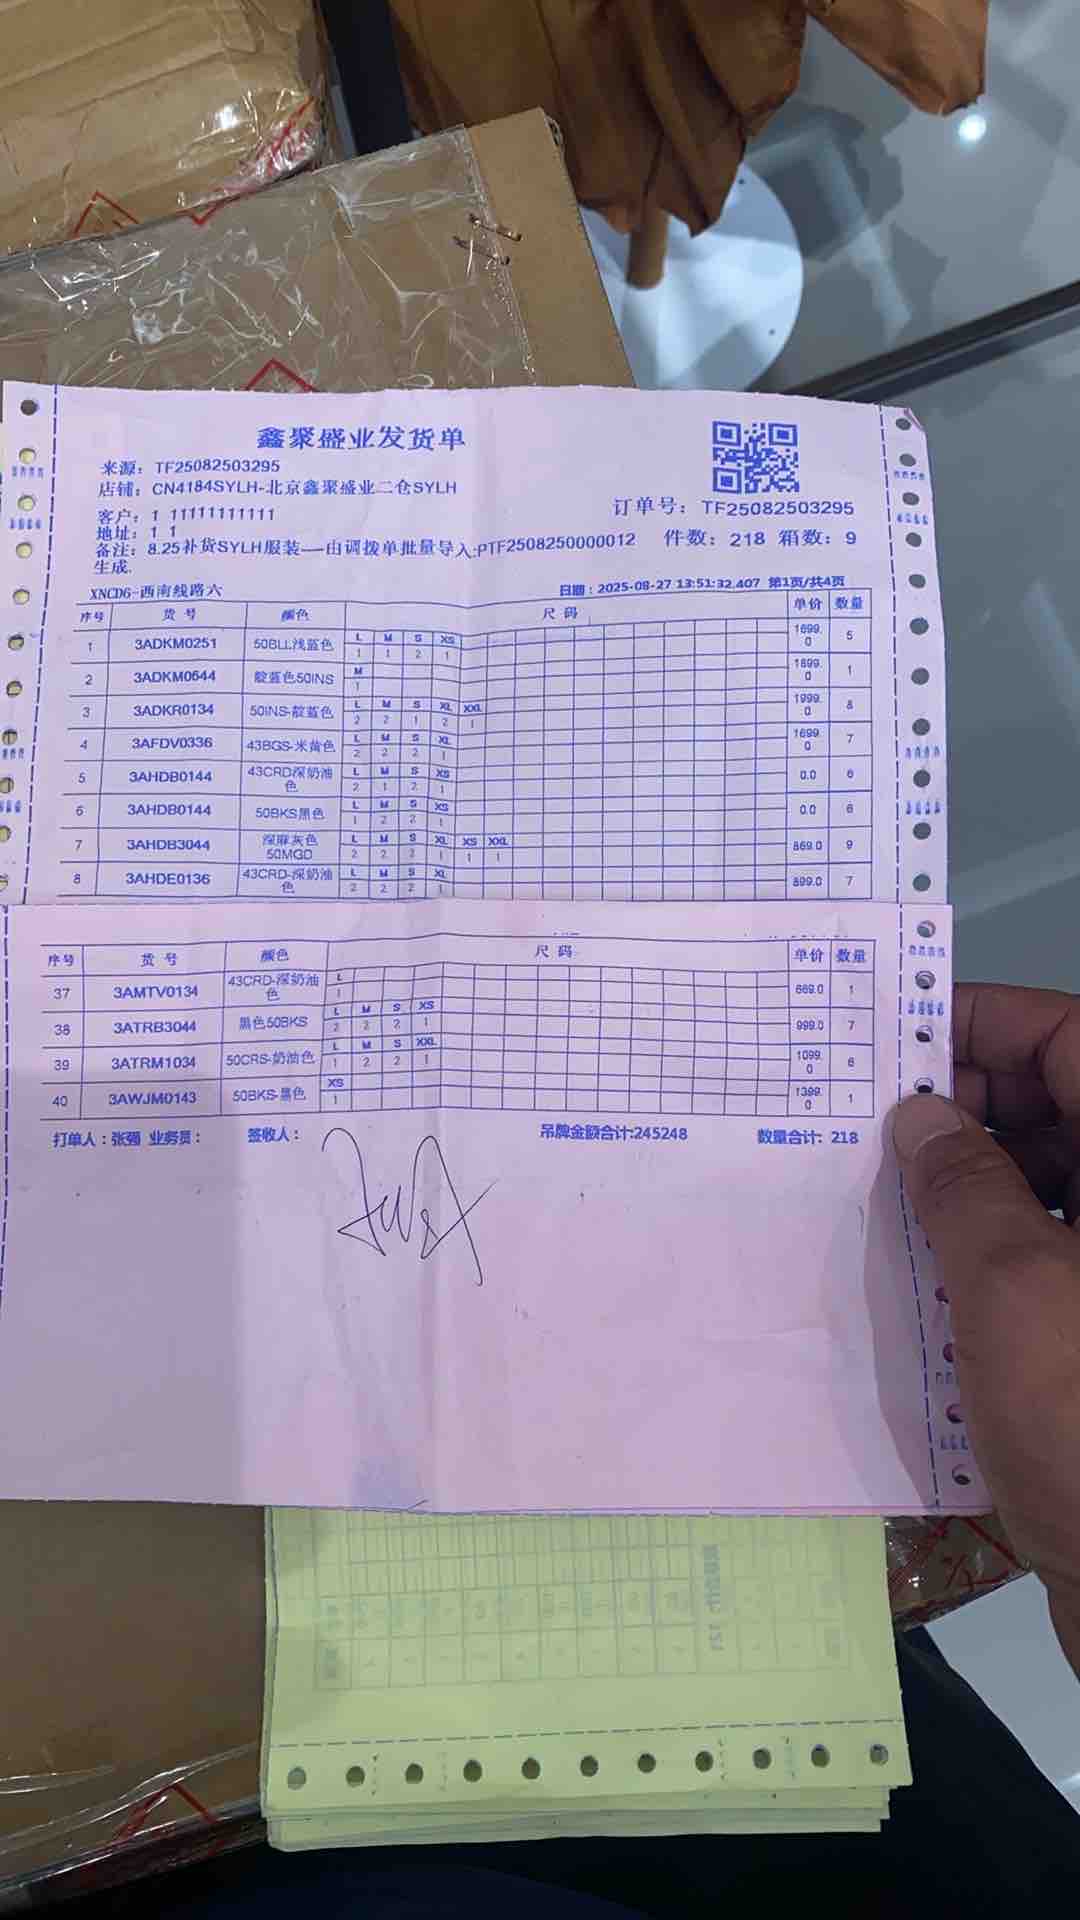 鑫聚盛业发货单
来源：TF25082503295
店铺：CN4184SYLH-北京鑫聚盛业二仓SYLH
客户：1 11111111111
订单号：TF25082503295
地址：1 1
备注：8.25补货SYLH服装----由调拨单批量导入:PTF2508250000012 件数：218 箱数：9
生成.
XNCD6-西南线路六
日期：2025-08-27 13:51:32.407 第1页/共4页
序号 货 号 颜色 尺 码 单价 数量
L M S XS
1 3ADKM0251 50BLL浅蓝色 1 1 2 1 1699.0 5
M
2 3ADKM0544 靛蓝色50INS 1 1899.0 1
L M S XL XXL
3 3ADKR0134 50INS-靛蓝色 2 2 1 2 1 1999.0 8
L M S XL
4 3AFDV0336 43BGS-米黄色 2 2 2 1 1699.0 7
L M S XS
5 3AHDB0144 43CRD深奶油色 2 1 2 1 0.0 6
L M S XS
6 3AHDB0144 50BKS黑色 1 2 2 1 0.0 6
L M S XL XS XXL
7 3AHDB3044 深麻灰色50MGD 2 2 2 1 1 1 869.0 9
L M S XL
8 3AHDE0136 43CRD-深奶油色 2 2 2 1 899.0 7
序号 货 号 颜色 尺 码 单价 数量
L
37 3AMTV0134 43CRD-深奶油色 1 669.0 1
L M S XS
38 3ATRB3044 黑色50BKS 2 2 2 1 999.0 7
L M S XXL
39 3ATRM1034 50CRS-奶油色 1 2 2 1 1099.0 6
XS
40 3AWJM0143 50BKS-黑色 1 1399.0 1
打单人：张强 业务员： 签收人： 吊牌金额合计:245248 数量合计: 218